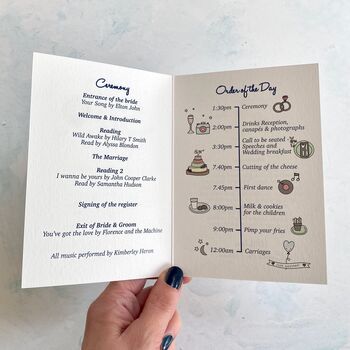 Ceremony
Entrance of the bride
Your Song by Elton John
Welcome & Introduction
Reading
Wild Awake by Hilary T Smith
Read by Alyssa Blondon
The Marriage
Reading 2
I wanna be yours by John Cooper Clarke
Read by Samantha Hudson
Signing of the register
Exit of Bride & Groom
You've got the love by Florence and the Machine
All music performed by Kimberley Heron
Order of the Day
1:30pm Ceremony
2:00pm Drinks Reception,
canapés & photographs
3:30pm Call to be seated
Speeches and
Wedding breakfast
7.40pm Cutting of the cheese
7.45pm First dance
8:00pm Milk & cookies
for the children
9:00pm Pimp your fries
12:00am Carriages